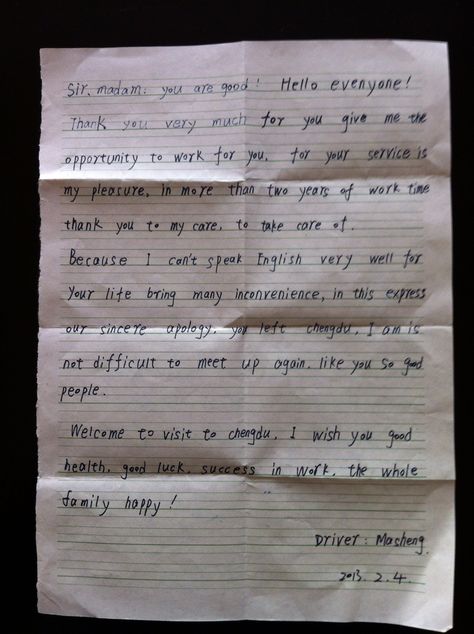 Sir. madam: you are good! Hello evenyone!
Thank you very much for you give me the
opportunity to work for you, for your service is
my pleasure, in more than two years of work time
thank you to my care, to take care of.
Because I can't speak English very well for
Your life bring many inconvenience, in this express
our sincere apology, you left chengdu, I am is
not difficult to meet up again, like you so good
people.
Welcome to visit to chengdu, I wish you good
health, good luck, success in work, the whole
family happy!
Driver: Masheng.
2013. 2. 4.